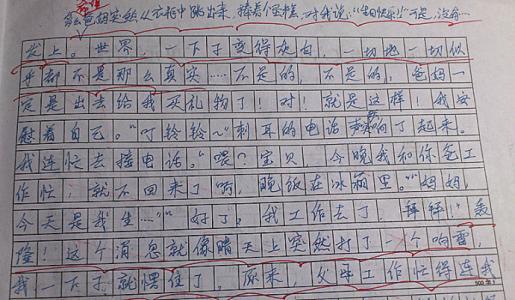 爸妈突然从衣柜中跳出来，捧着个蛋糕，对我说：“生日快乐！”可是，没有…
发上。世界一下子变得灰白，一切也一切似
乎都不是那么真实……不是的，不是的，爸妈一
定是出去给我买礼物了！对！就是这样！我安
慰着自己。“叮铃铃~”刺耳的电话声响了起来。
我连忙去接电话。“喂？宝贝，今晚我和你爸工
作忙，就不回来了啊，晚饭在冰箱里。”“妈妈，
今天是我生……”“好了，我工作去了，拜拜！”轰
隆！这个消息就像晴天上突然打了一个响雷，
我一下子就愣住了，原来，父母工作忙得连我